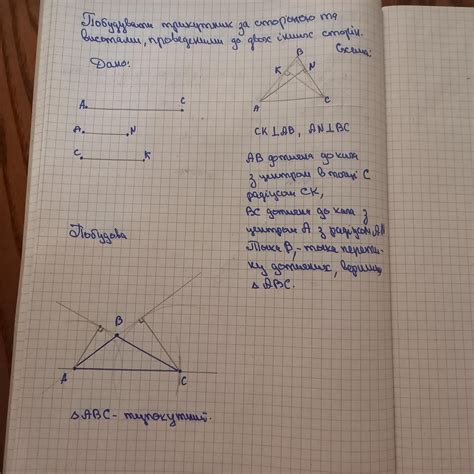 Побудувати трикутник за стороною та
висотами, проведеними до двох інших сторін.
Дано:
Схема:
A C
A N
C K
B
K N
A C
CK⊥AB, AN⊥BC
AB дотична до кола
з центром в точці C
радіусом CK,
BC дотична до кола з
центром A з радіусом AN
Точка B, - точка перети-
ку дотичних, вершина
△ABC.
Побудова
B
A C
△ABC - тупокутний.